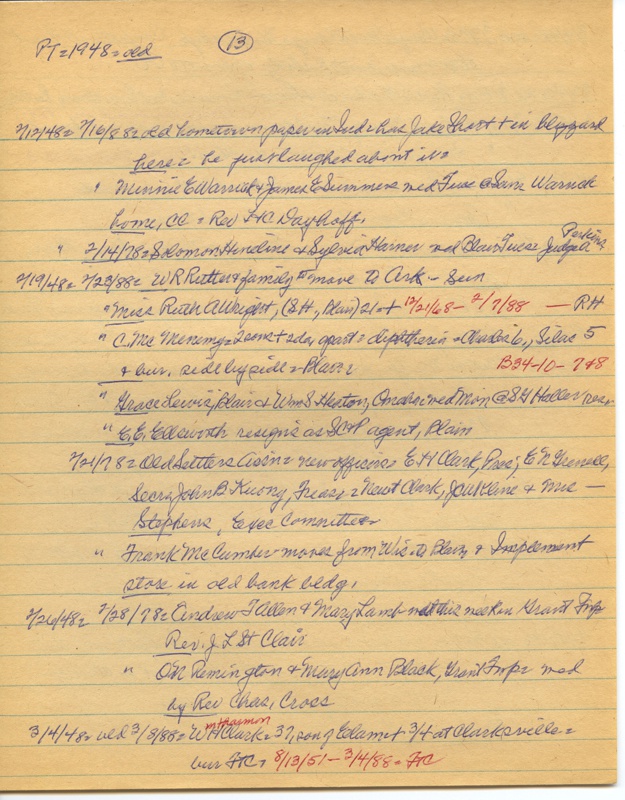 PT=1948=old
13
2/12/48= 2/16/88= old hometown paper in Ind = has Jake Short + in blizzard
here = he just laughed about it=
" Minnie E Warrick + James E Simmers wed Tues @ Sam Warrick
home, CC = Rev H C Dayhoff.
Perkins
" 2/14/78= Solomon Hineline & Sylvia Harner wed Blair Tues Judge
2/19/48= 2/23/88= W R Rutter & family to move to Ark - Sun
" Miss Ruth A Wright, (S H, Blair) 21 + 12/21/68 - 2/7/88 — RH
" C. McMenemy = 2 sons + 2 day apart = diphtheria = Charles 6, Silas 5
+ bur. side by side = Blair B34-10-7+8
" Grace Lewis, Blair & Wm S Heston, wed Mon @ S H Haller res=
" E. E. Ellsworth resigns as agent, Blair
2/21/78= Old Settlers Ass'n = new officers = E H Clark, Pres; E N Grenell,
Secy; John B Kuony, Treas = Newt Clark, J W Kline & Mrs —
Stephens, Exec Committee=
" Frank McCumber moves from Wis to Blair & Implement
store in old bank bldg.
2/26/48= 2/28/78= Andrew J Allen & Mary Lamb this week in Grant Twp
Rev. J L St Clair
" O N Remington & Mary Ann Black, Grant Twp= wed
by Rev Chas. Cross
m Harmon
3/4/48= old 3/8/88= W H Clark= 37, son of Edam + 3/4 at Clarksville=
bur FtC= 8/13/51 - 3/4/88= FtC